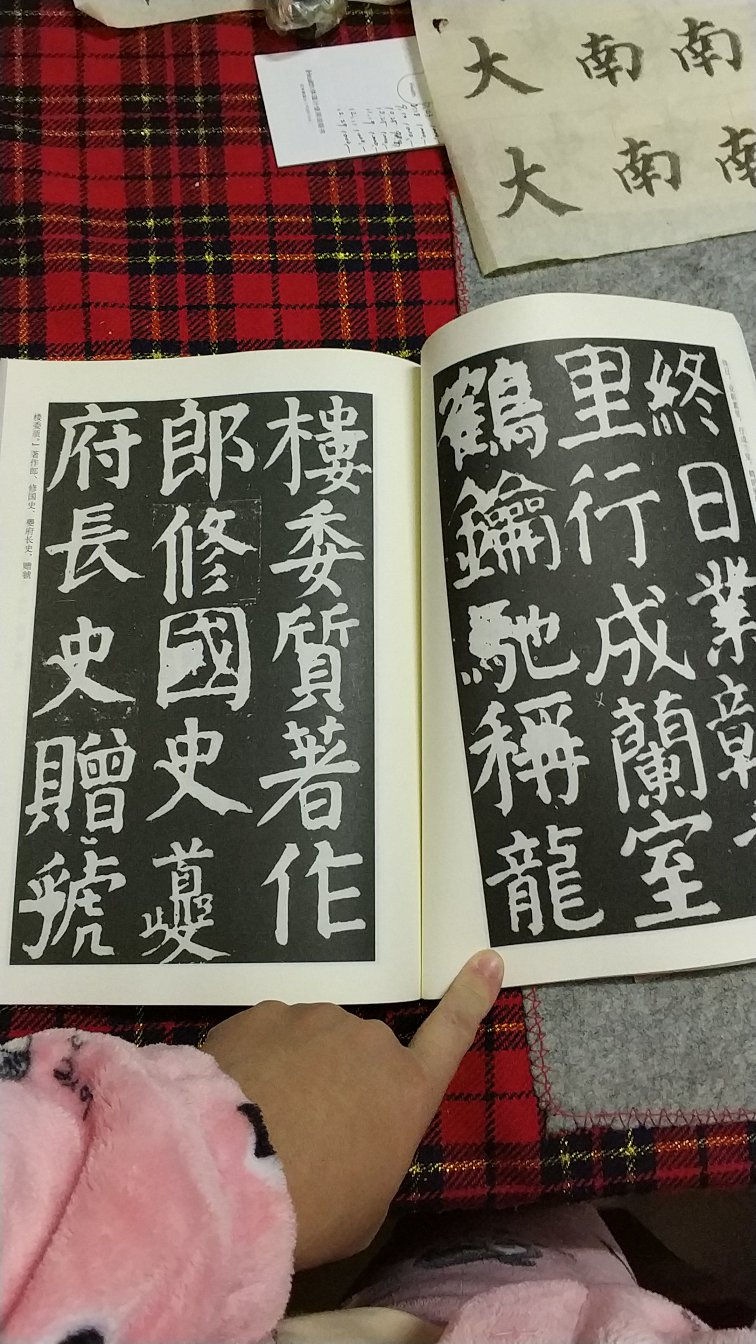 大南南
大南南
終日業彰
里行成蘭室
鶴鑰馳稱龍
樓委質著作
郎修國史夔
府長史贈虢
楼委质。」著作郎、修国史、夔府长史，赠虢